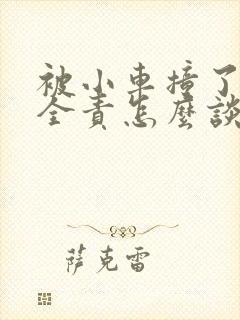 被小車撞了
全責怎麼談
薩克雷